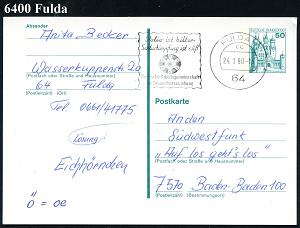 6400 Fulda
Absender
Anita Becker
Wasserkuppenstr. 20
(Postfach oder Straße und Hausnummer)
64 Fulda
(Postleitzahl) (Ort)
Tel 0661/41775
Lösung
Eichhörnchen
ö = oe
FULDA
24.1.80
64
DEUTSCHE BUNDESPOST
50
Postkarte
An den
Südwestfunk
"Auf los geht's los"
(Postfach oder Straße und Hausnummer)
7570 Baden-Baden 100
(Postleitzahl) (Bestimmungsort)